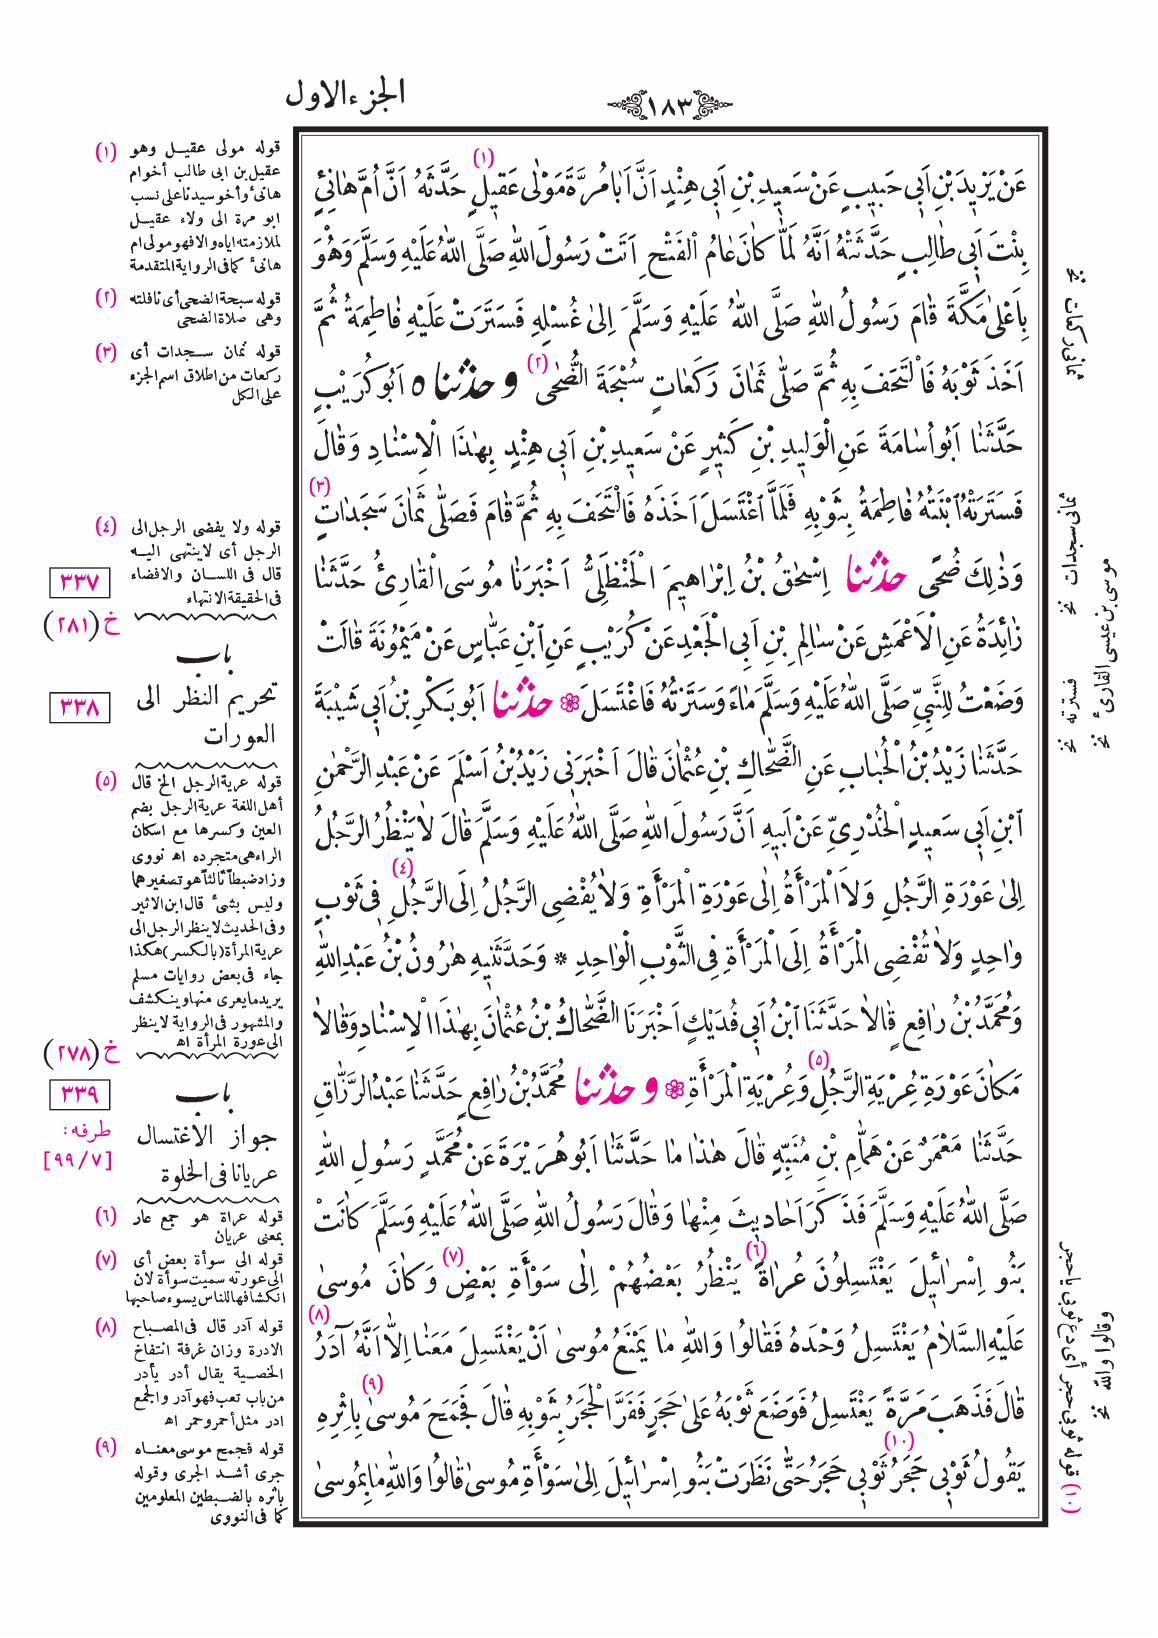 الجزء الاول
١٨٣
عَنْ يَزِيدَ بْنِ اَبِي حَبِيبٍ عَنْ سَعِيدِ بْنِ اَبِي هِنْدٍ اَنَّ اَبَا مُرَّةَ مَوْلٰى عَقِيلٍ (١) حَدَّثَهُ اَنَّ اُمَّ هَانِئٍ
بِنْتَ اَبِي طَالِبٍ حَدَّثَتْهُ اَنَّهُ لَمَّا كَانَ عَامُ الْفَتْحِ اَتَتْ رَسُولَ اللّٰهِ صَلَّى اللّٰهُ عَلَيْهِ وَسَلَّمَ وَهُوَ
بِاَعْلٰى مَكَّةَ قَامَ رَسُولُ اللّٰهِ صَلَّى اللّٰهُ عَلَيْهِ وَسَلَّمَ اِلىٰ غُسْلِهِ فَسَتَرَتْ عَلَيْهِ فَاطِمَةُ ثُمَّ
اَخَذَ ثَوْبَهُ فَالْتَحَفَ بِهِ ثُمَّ صَلّٰى ثَمَانَ رَكَعَاتٍ سُبْحَةَ الضُّحٰى (٢) و حدثنا ٥ اَبُو كُرَيْبٍ
حَدَّثَنَا اَبُو اُسَامَةَ عَنِ الْوَلِيدِ بْنِ كَثِيرٍ عَنْ سَعِيدِ بْنِ اَبِي هِنْدٍ بِهٰذَا الْاِسْنَادِ وَقَالَ
فَسَتَرَتْهُ ابْنَتُهُ فَاطِمَةُ بِثَوْبِهِ فَلَمَّا اغْتَسَلَ اَخَذَهُ فَالْتَحَفَ بِهِ ثُمَّ قَامَ فَصَلّٰى ثَمَانَ سَجَدَاتٍ (٣)
وَذٰلِكَ ضُحًى حدثنا اِسْحٰقُ بْنُ اِبْرَاهِيمَ الْحَنْظَلِيُّ اَخْبَرَنَا مُوسَى الْقَارِئُ حَدَّثَنَا
زَائِدَةُ عَنِ الْاَعْمَشِ عَنْ سَالِمِ بْنِ اَبِي الْجَعْدِ عَنْ كُرَيْبٍ عَنِ ابْنِ عَبَّاسٍ عَنْ مَيْمُونَةَ قَالَتْ
وَضَعْتُ لِلنَّبِيِّ صَلَّى اللّٰهُ عَلَيْهِ وَسَلَّمَ مَاءً وَسَتَرْتُهُ فَاغْتَسَلَ ❁ حدثنا اَبُو بَكْرِ بْنُ اَبِي شَيْبَةَ
حَدَّثَنَا زَيْدُ بْنُ الْحُبَابِ عَنِ الضَّحَّاكِ بْنِ عُثْمَانَ قَالَ اَخْبَرَنِي زَيْدُ بْنُ اَسْلَمَ عَنْ عَبْدِ الرَّحْمٰنِ
ابْنِ اَبِي سَعِيدٍ الْخُدْرِيِّ عَنْ اَبِيهِ اَنَّ رَسُولَ اللّٰهِ صَلَّى اللّٰهُ عَلَيْهِ وَسَلَّمَ قَالَ لَا يَنْظُرُ الرَّجُلُ
اِلىٰ عَوْرَةِ الرَّجُلِ وَلَا الْمَرْأَةُ اِلىٰ عَوْرَةِ الْمَرْأَةِ وَلَا يُفْضِي (٤) الرَّجُلُ اِلَى الرَّجُلِ فِي ثَوْبٍ
وَاحِدٍ وَلَا تُفْضِي الْمَرْأَةُ اِلَى الْمَرْأَةِ فِي الثَّوْبِ الْوَاحِدِ * وَحَدَّثَنِيهِ هٰرُونُ بْنُ عَبْدِ اللّٰهِ
وَمُحَمَّدُ بْنُ رَافِعٍ قَالَا حَدَّثَنَا ابْنُ اَبِي فُدَيْكٍ اَخْبَرَنَا الضَّحَّاكُ بْنُ عُثْمَانَ بِهٰذَا الْاِسْنَادِ وَقَالَا
مَكَانَ عَوْرَةِ عُرْيَةِ الرَّجُلِ (٥) وَعُرْيَةِ الْمَرْأَةِ ❁ و حدثنا مُحَمَّدُ بْنُ رَافِعٍ حَدَّثَنَا عَبْدُ الرَّزَّاقِ
حَدَّثَنَا مَعْمَرٌ عَنْ هَمَّامِ بْنِ مُنَبِّهٍ قَالَ هٰذَا مَا حَدَّثَنَا اَبُو هُرَيْرَةَ عَنْ مُحَمَّدٍ رَسُولِ اللّٰهِ
صَلَّى اللّٰهُ عَلَيْهِ وَسَلَّمَ فَذَكَرَ اَحَادِيثَ مِنْهَا وَقَالَ رَسُولُ اللّٰهِ صَلَّى اللّٰهُ عَلَيْهِ وَسَلَّمَ كَانَتْ
بَنُو اِسْرَائِيلَ يَغْتَسِلُونَ عُرَاةً (٦) يَنْظُرُ بَعْضُهُمْ اِلىٰ سَوْأَةِ بَعْضٍ (٧) وَكَانَ مُوسىٰ
عَلَيْهِ السَّلَامُ يَغْتَسِلُ وَحْدَهُ فَقَالُوا وَاللّٰهِ مَا يَمْنَعُ مُوسىٰ اَنْ يَغْتَسِلَ مَعَنَا اِلَّا اَنَّهُ آدَرُ (٨)
قَالَ فَذَهَبَ مَرَّةً يَغْتَسِلُ فَوَضَعَ ثَوْبَهُ عَلىٰ حَجَرٍ فَفَرَّ الْحَجَرُ بِثَوْبِهِ قَالَ فَجَمَحَ مُوسىٰ (٩) بِاِثْرِهِ
يَقُولُ ثَوْبِي حَجَرُ ثَوْبِي حَجَرُ (١٠) حَتّٰى نَظَرَتْ بَنُو اِسْرَائِيلَ اِلىٰ سَوْأَةِ مُوسىٰ قَالُوا وَاللّٰهِ مَا بِمُوسىٰ
(١) قوله مولى عقيل وهو
عقيل بن ابى طالب أخوام
هانئ وأخو سيدنا على نسب
ابو مرة الى ولاء عقيل
لملازمته اياه والا فهو مولى ام
هانئ كما فى الرواية المتقدمة
(٢) قوله سبحة الضحى أى نافلته
وهى صلاة الضحى
(٣) قوله ثمان سجدات أى
ركعات من اطلاق اسم الجزء
على الكل
(٤) قوله ولا يفضى الرجل الى
الرجل أى لا ينتهى اليه
قال فى اللسان والافضاء
فى الحقيقة الانتهاء
٣٣٧
خ (٢٨١)
باب
تحريم النظر الى
العورات
٣٣٨
(٥) قوله عرية الرجل الخ قال
أهل اللغة عرية الرجل بضم
العين وكسرها مع اسكان
الراء هى متجرده اه نووى
وزاد ضبطا ثالثا هو تصغيرها
وليس بشئ قال ابن الاثير
وفى الحديث لا ينظر الرجل الى
عرية المرأة (بالكسر) هكذا
جاء فى بعض روايات مسلم
يريد ما يعرى منها وينكشف
والمشهور فى الرواية لا ينظر
الى عورة المرأة اه
خ (٢٧٨)
باب
جواز الاغتسال
عريانا فى الخلوة
٣٣٩
طرفه:
[٩٩/٧]
(٦) قوله عراة هو جمع عار
بمعنى عريان
(٧) قوله الى سوأة بعض أى
الى عورته سميت سوأة لان
انكشافها للناس يسوء صاحبها
(٨) قوله آدر قال فى المصباح
الادرة وزان غرفة انتفاخ
الخصية يقال أدر يأدر
من باب تعب فهو آدر والجمع
ادر مثل أحمر وحمر اه
(٩) قوله فجمح موسى معناه
جرى أشد الجرى وقوله
باثره بالضبطين المعلومين
كما فى النووى
ثمانى ركعات نخ
ثمانى سجدات نخ
موسى بن عيسى القارئ نخ
فسترته نخ
وقالوا والله نخ
(١٠) قوله ثوبى حجر أى دع ثوبى يا حجر